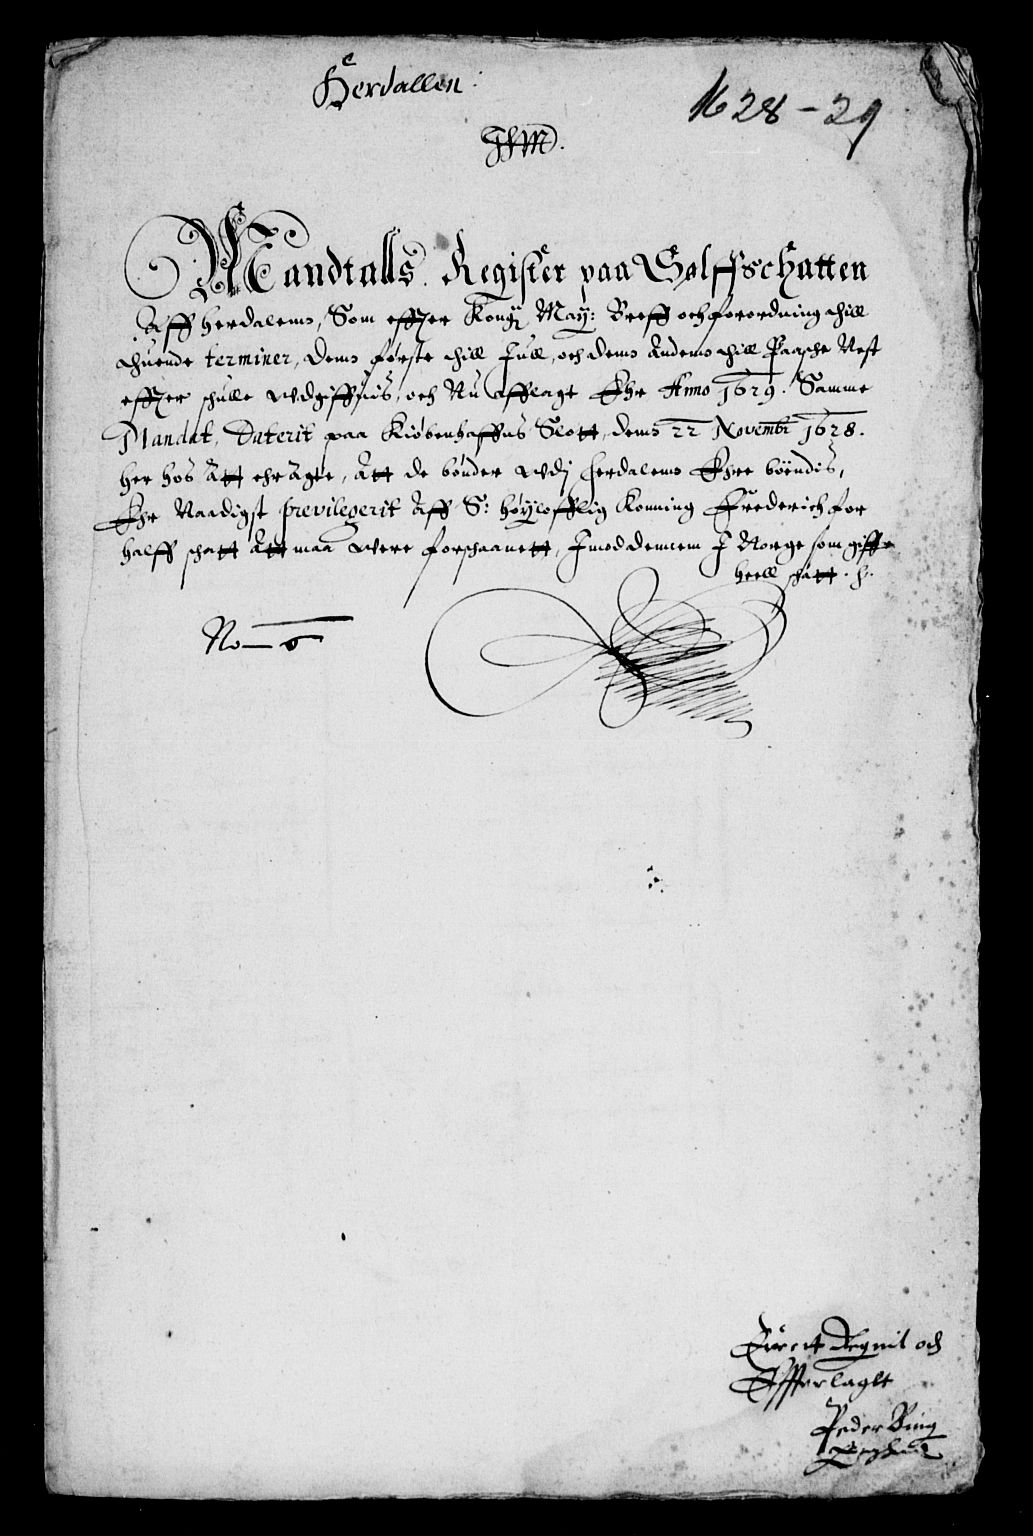 Herdallen
1628-29
Mandtalls Register paa Sølffschatten
Aff Herdalenn, Som effter Kong: May: Breff och forordning thill
thuende terminer, denn første thill Jull, och denn Andenn thill Paasche Nest
effter schulle udgiffuis, och Nu afflagt Ehr Anno 1629. Samme
Mandat, Daterit paa Kiøbenhaffns Slott, denn 22 Novemb: 1628.
her hos Att ehragte, Att de bønder udj herdalenn Ehre bøendis,
Ehr Naadigst previlegerit Aff S: høylofflig Konning Frederich for
halff schatt Att maa were forschaanett, Imod dennem J Norge som giffr
heell schatt.
No 6
Reignit och
Offerlagtt
Peder